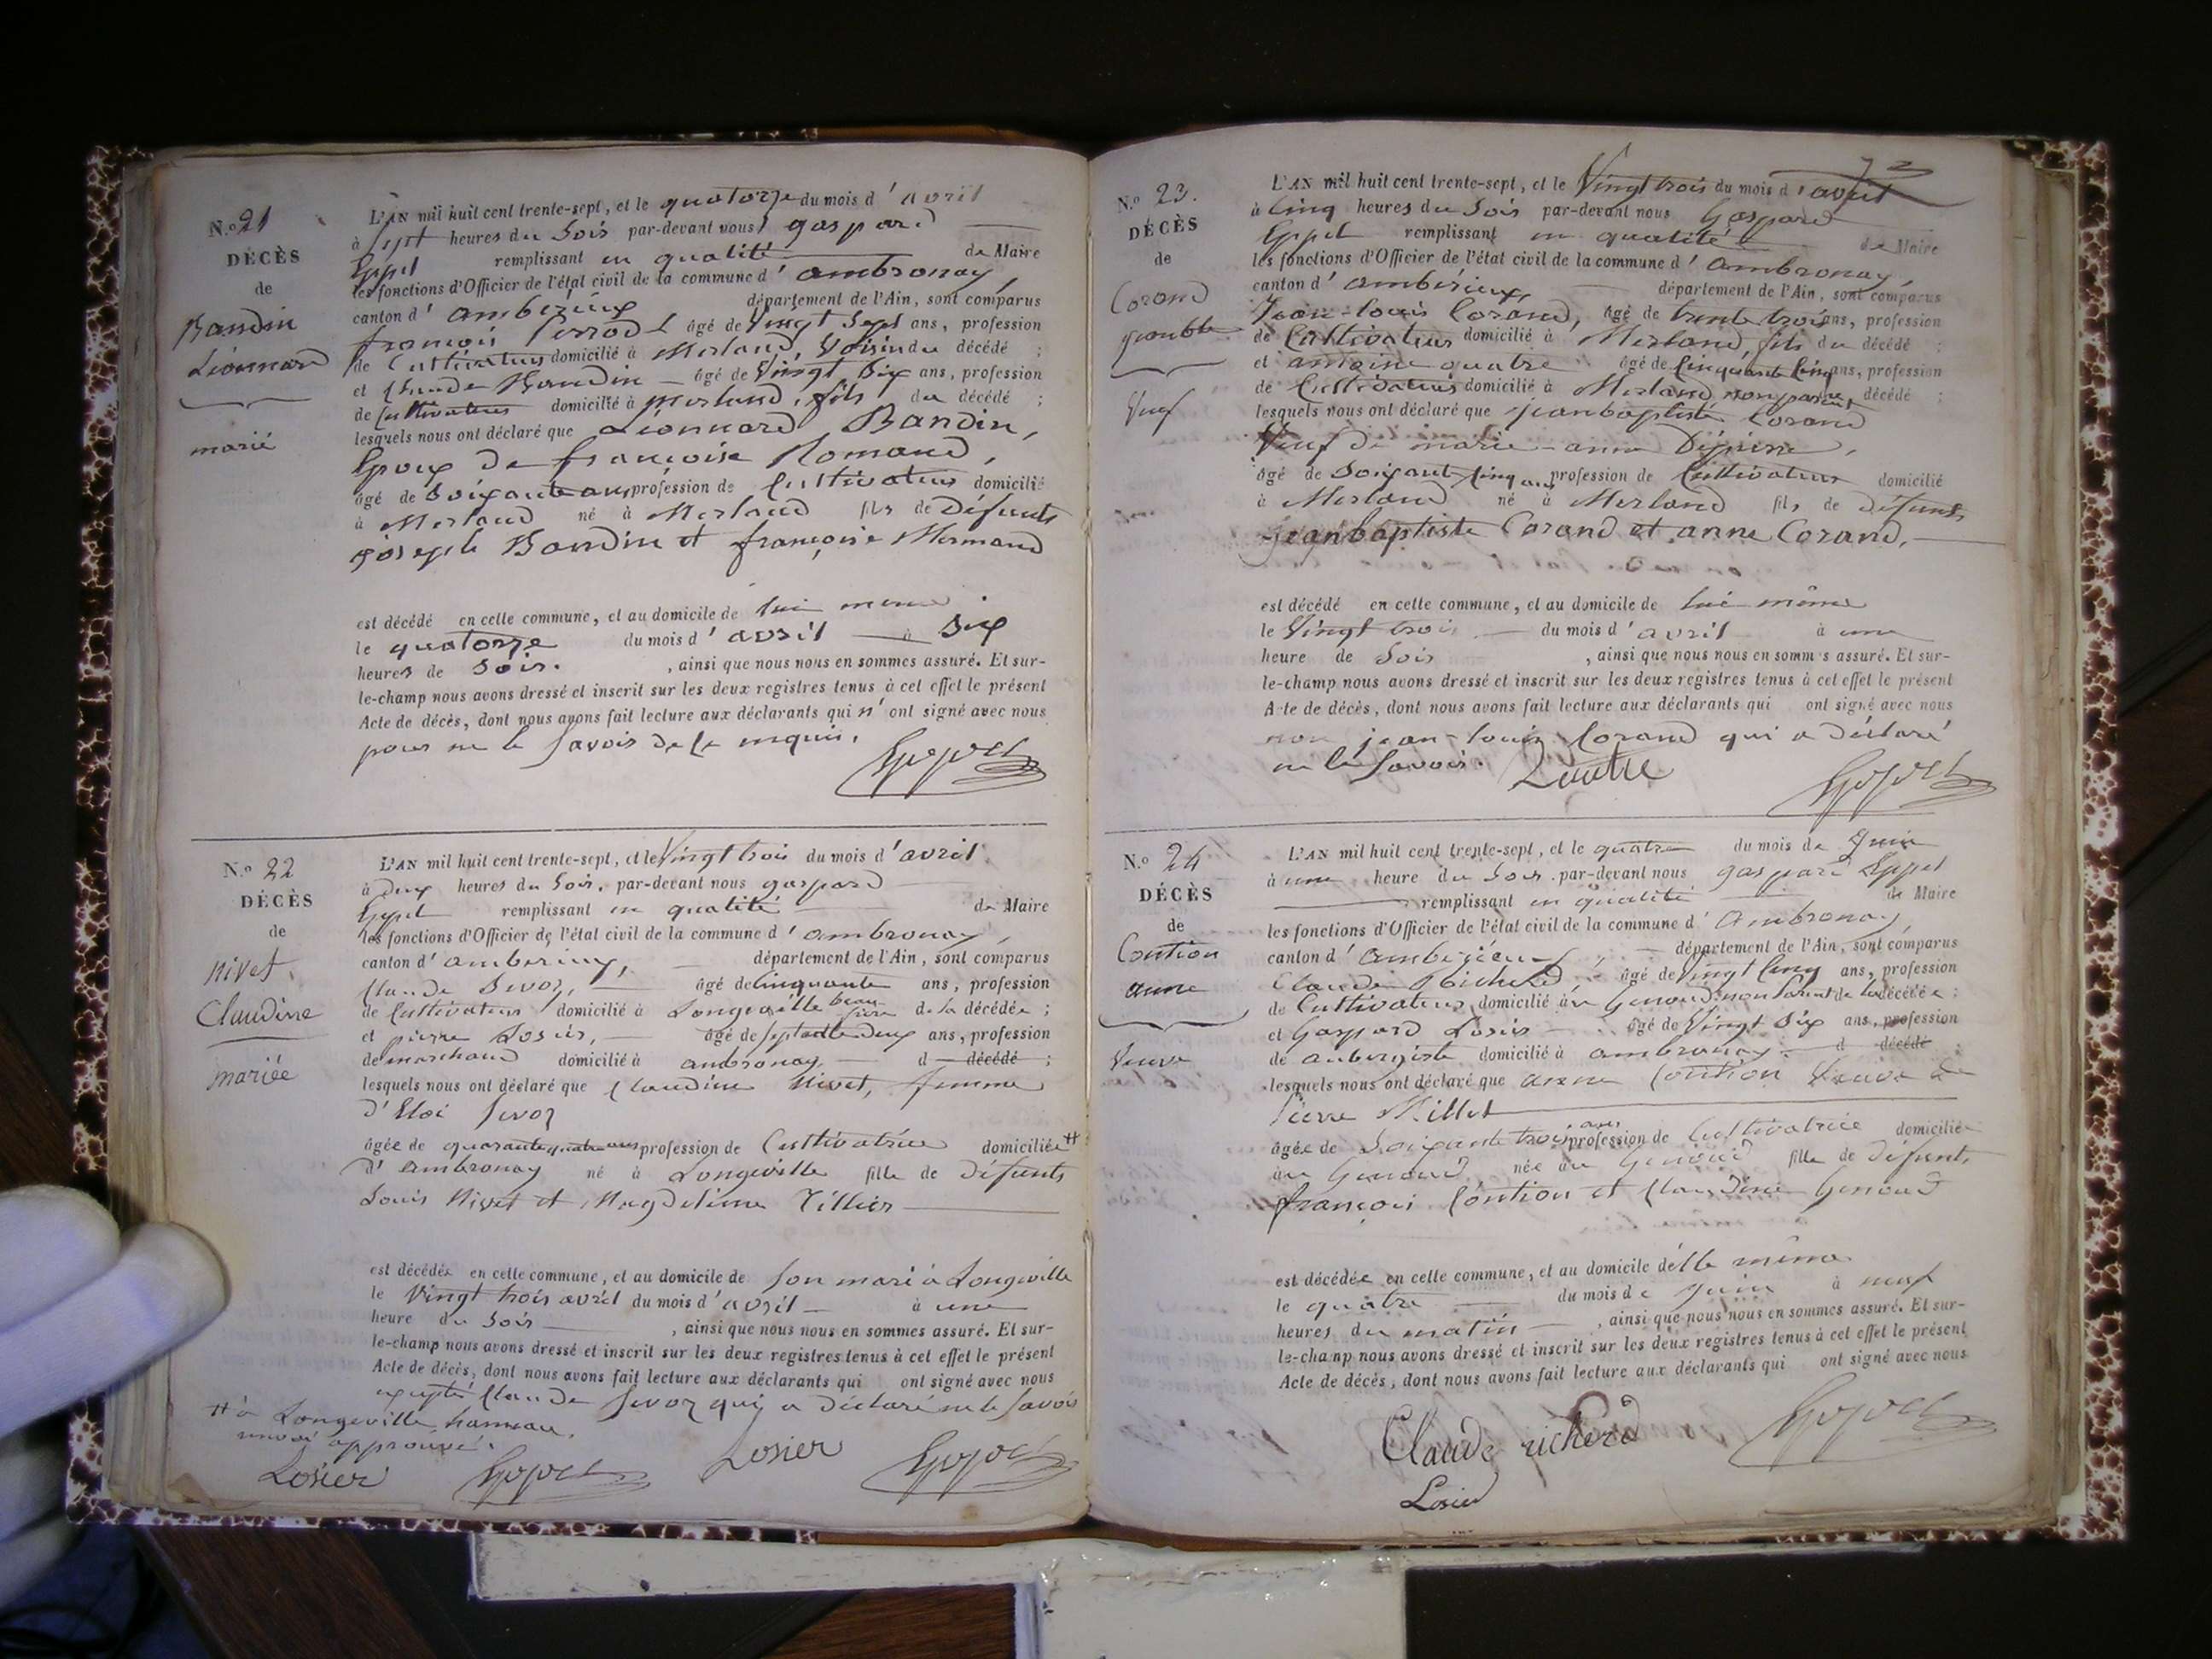 N.o 21
DÉCÈS
de
Bandin
Léonnard
marié
L'AN mil huit cent trente-sept, et le quatorze du mois d'avril
à sept heures du soir par-devant nous gaspard
Eppel remplissant en qualité de Maire
les fonctions d'Officier de l'état civil de la commune d'ambronay,
canton d'ambérieux département de l'Ain, sont comparus
françois Perrod âgé de Vingt Sept ans, profession
de Cultivateur domicilié à Merland, Voisin du décédé ;
et Claude Bandin âgé de Vingt Six ans, profession
de Cultivateur domicilié à Merland, fils du décédé ;
lesquels nous ont déclaré que Léonnard Bandin,
Epoux de françoise Romand,
âgé de Soixante ans profession de Cultivateur domicilié
à Merland né à Merland fils de Défunts
joseph Bandin et françoise Mermand
est décédé en cette commune, et au domicile de lui meme
le quatorze du mois d'avril à Six
heures de Soir. , ainsi que nous nous en sommes assuré. Et sur-
le-champ nous avons dressé et inscrit sur les deux registres tenus à cet effet le présent
Acte de décès, dont nous avons fait lecture aux déclarants qui n'ont signé avec nous
pour ne le savoir de ce enquis.
N.o 22
DÉCÈS
de
Nivet,
Claudine
mariée
L'AN mil huit cent trente-sept, et le Vingt trois du mois d'avril
à deux heures du Soir. par-devant nous gaspard
Eppel remplissant en qualité de Maire
les fonctions d'Officier de l'état civil de la commune d'ambronay,
canton d'amberieux, département de l'Ain, sont comparus
Claude Sevoz, âgé de Cinquante ans, profession
de Cultivateur domicilié à Longeville beau frère de la décédée ;
et pierre Losier, âgé de Septante deux ans, profession
de marchand domicilié à ambronay, d décédé ;
lesquels nous ont déclaré que Claudine Nivet, femme
d'Eloi Sevoz
âgée de quarante quatre ans profession de Cultivatrice domiciliée #
d'ambronay né à Longeville fille de Défunts
Louis Nivet et Magdeleine Tillier
est décédée en cette commune, et au domicile de son mari à Longeville
le Vingt trois avril du mois d'avril à une
heure du Soir , ainsi que nous nous en sommes assuré. Et sur-
le-champ nous avons dressé et inscrit sur les deux registres tenus à cet effet le présent
Acte de décès, dont nous avons fait lecture aux déclarants qui ont signé avec nous
excepté Claude Sevoz qui a déclaré ne le savoir
# à Longeville hameau,
renvoi approuvé.
Losier Losier
N.o 23.
DÉCÈS
de
Corand
jeanbte
Veuf
72
L'AN mil huit cent trente-sept, et le Vingt trois du mois d'avril
à Cinq heures du Soir par-devant nous Gaspard
Eppel remplissant en qualité de Maire
les fonctions d'Officier de l'état civil de la commune d'ambronay,
canton d'ambérieux, département de l'Ain, sont comparus
Jean-louis Corand, âgé de trente trois ans, profession
de Cultivateur domicilié à Merland, fils du décédé ;
et antoine quatre âgé de Cinquante Cinq ans, profession
de Cultivateur domicilié à Merland non parent, décédé ;
lesquels nous ont déclaré que jeanbaptiste Corand
Veuf de marie-anne
âgé de Soixante Cinq ans profession de Cultivateur domicilié
à Merland né à Merland fils de Défunts
jeanbaptiste Corand et anne Corand,
est décédé en cette commune, et au domicile de lui même
le Vingt trois du mois d'avril à une
heure de Soir , ainsi que nous nous en sommes assuré. Et sur-
le-champ nous avons dressé et inscrit sur les deux registres tenus à cet effet le présent
Acte de décès, dont nous avons fait lecture aux déclarants qui ont signé avec nous
non jean-louis Corand qui a déclaré
ne le savoir.
N.o 24
DÉCÈS
de
Contion
anne
Veuve
L'AN mil huit cent trente-sept, et le quatre du mois de Juin
à une heure du Soir par-devant nous gaspard Eppel
remplissant en qualité de Maire
les fonctions d'Officier de l'état civil de la commune d'Ambronay,
canton d'ambérieux, département de l'Ain, sont comparus
Claude Richerd, âgé de Vingt Cinq ans, profession
de Cultivateur, domicilié au Genoud, non Parent de la décédée ;
et Gaspard Losier âgé de Vingt Six ans, profession
de aubergiste domicilié à ambronay. d décédé
lesquels nous ont déclaré que anne Contion Veuve de
Pierre Millet
âgée de Soixante trois ans profession de Cultivatrice domicilié
au Genoud née au Genoud fille de Défunts
françois Contion et Claudine Genoud
est décédée en cette commune, et au domicile d'elle même
le quatre du mois de Juin à neuf
heures du matin , ainsi que nous nous en sommes assuré. Et sur-
le-champ nous avons dressé et inscrit sur les deux registres tenus à cet effet le présent
Acte de décès, dont nous avons fait lecture aux déclarants qui ont signé avec nous
Claude richerd
Losier